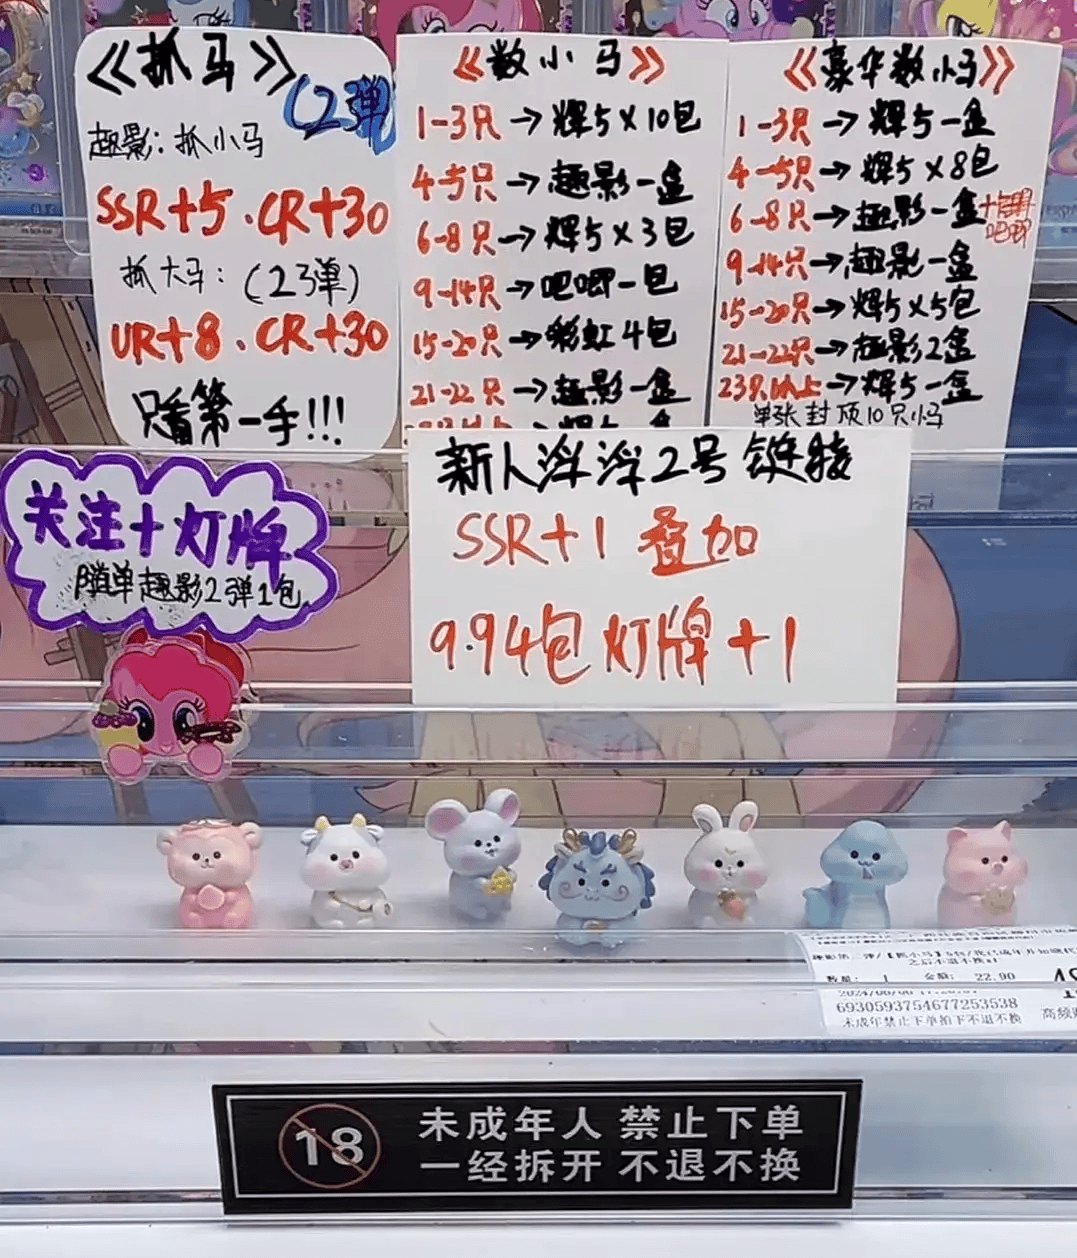 《抓马》
(2弹
趣影: 抓小马
SSR+5·CR+30
抓大马: (23弹)
UR+8·CR+30
只看第一手!!!
《数小马》
1-3只→辉5×10包
4-5只→趣影一盒
6-8只→辉5×3包
9-14只→吧唧一包
15-20只→彩虹4包
21-22只→趣影一盒
《豪华数小马》
1-3只→辉5一盒
4-5只→辉5×8包
6-8只→趣影一盒+
吧唧
9-14只→趣影一盒
15-20只→辉5×5包
21-22只→趣影2盒
23只以上→辉5一盒
单张封顶10只小马
关注+灯牌
随单趣影2弹1包
新人浮浮2号链接
SSR+1 叠加
9.94包灯牌+1
数量: 1 金额: 22.90
6930593754677253538
未成年禁止下单拍下不退不换
18
未成年人 禁止下单
一经拆开 不退不换